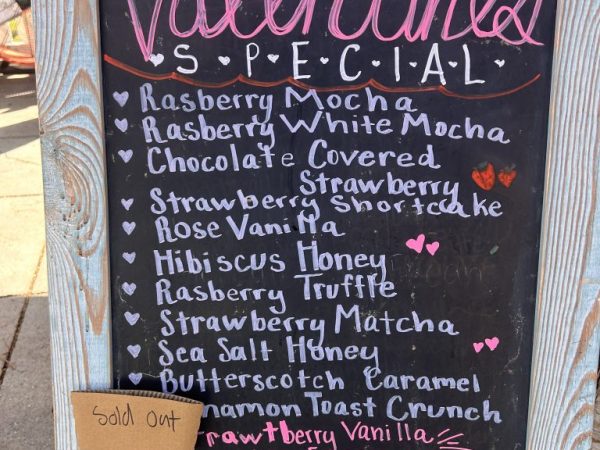 Valentines
SPECIAL
Rasberry Mocha
Rasberry White Mocha
Chocolate Covered
Strawberry
Strawberry Shortcake
Rose Vanilla
Hibiscus Honey
Rasberry Truffle
Strawberry Matcha
Sea Salt Honey
Butterscotch Caramel
nnamon Toast Crunch
Sold out
trawtberry Vanilla